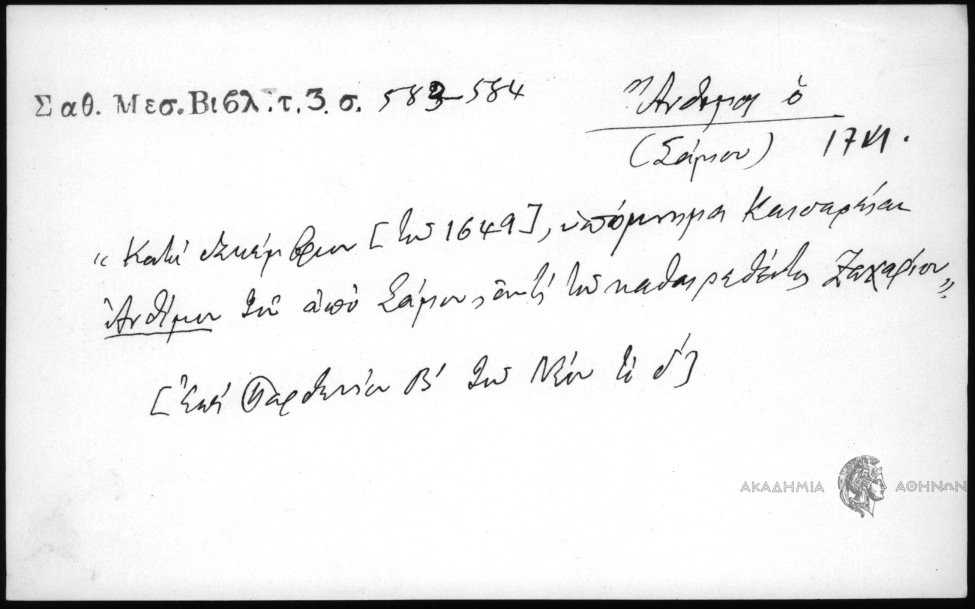 Σαθ. Μεσ. Βιβλ. τ. 3 σ. 583-584
Ἄνθιμος ὁ
(Σάμου) 17 αι.
"Κατά Δεκέμβριον [τοῦ 1649], ὑπόμνημα Καισαρείας
Ἀνθίμου τοῦ ἀπό Σάμου, ἀντί τοῦ καθαιρεθέντος Ζαχαρίου"
[Ἐπί Παρθενίου Β΄ τοῦ Νέου τό β΄]
ΑΚΑΔΗΜΙΑ ΑΘΗΝΩΝ